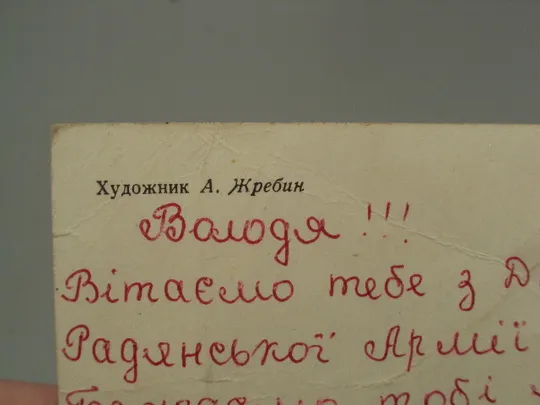 Художник А. Жребин
Володя !!!
Вітаємо тебе з
Радянської Армії
тобі